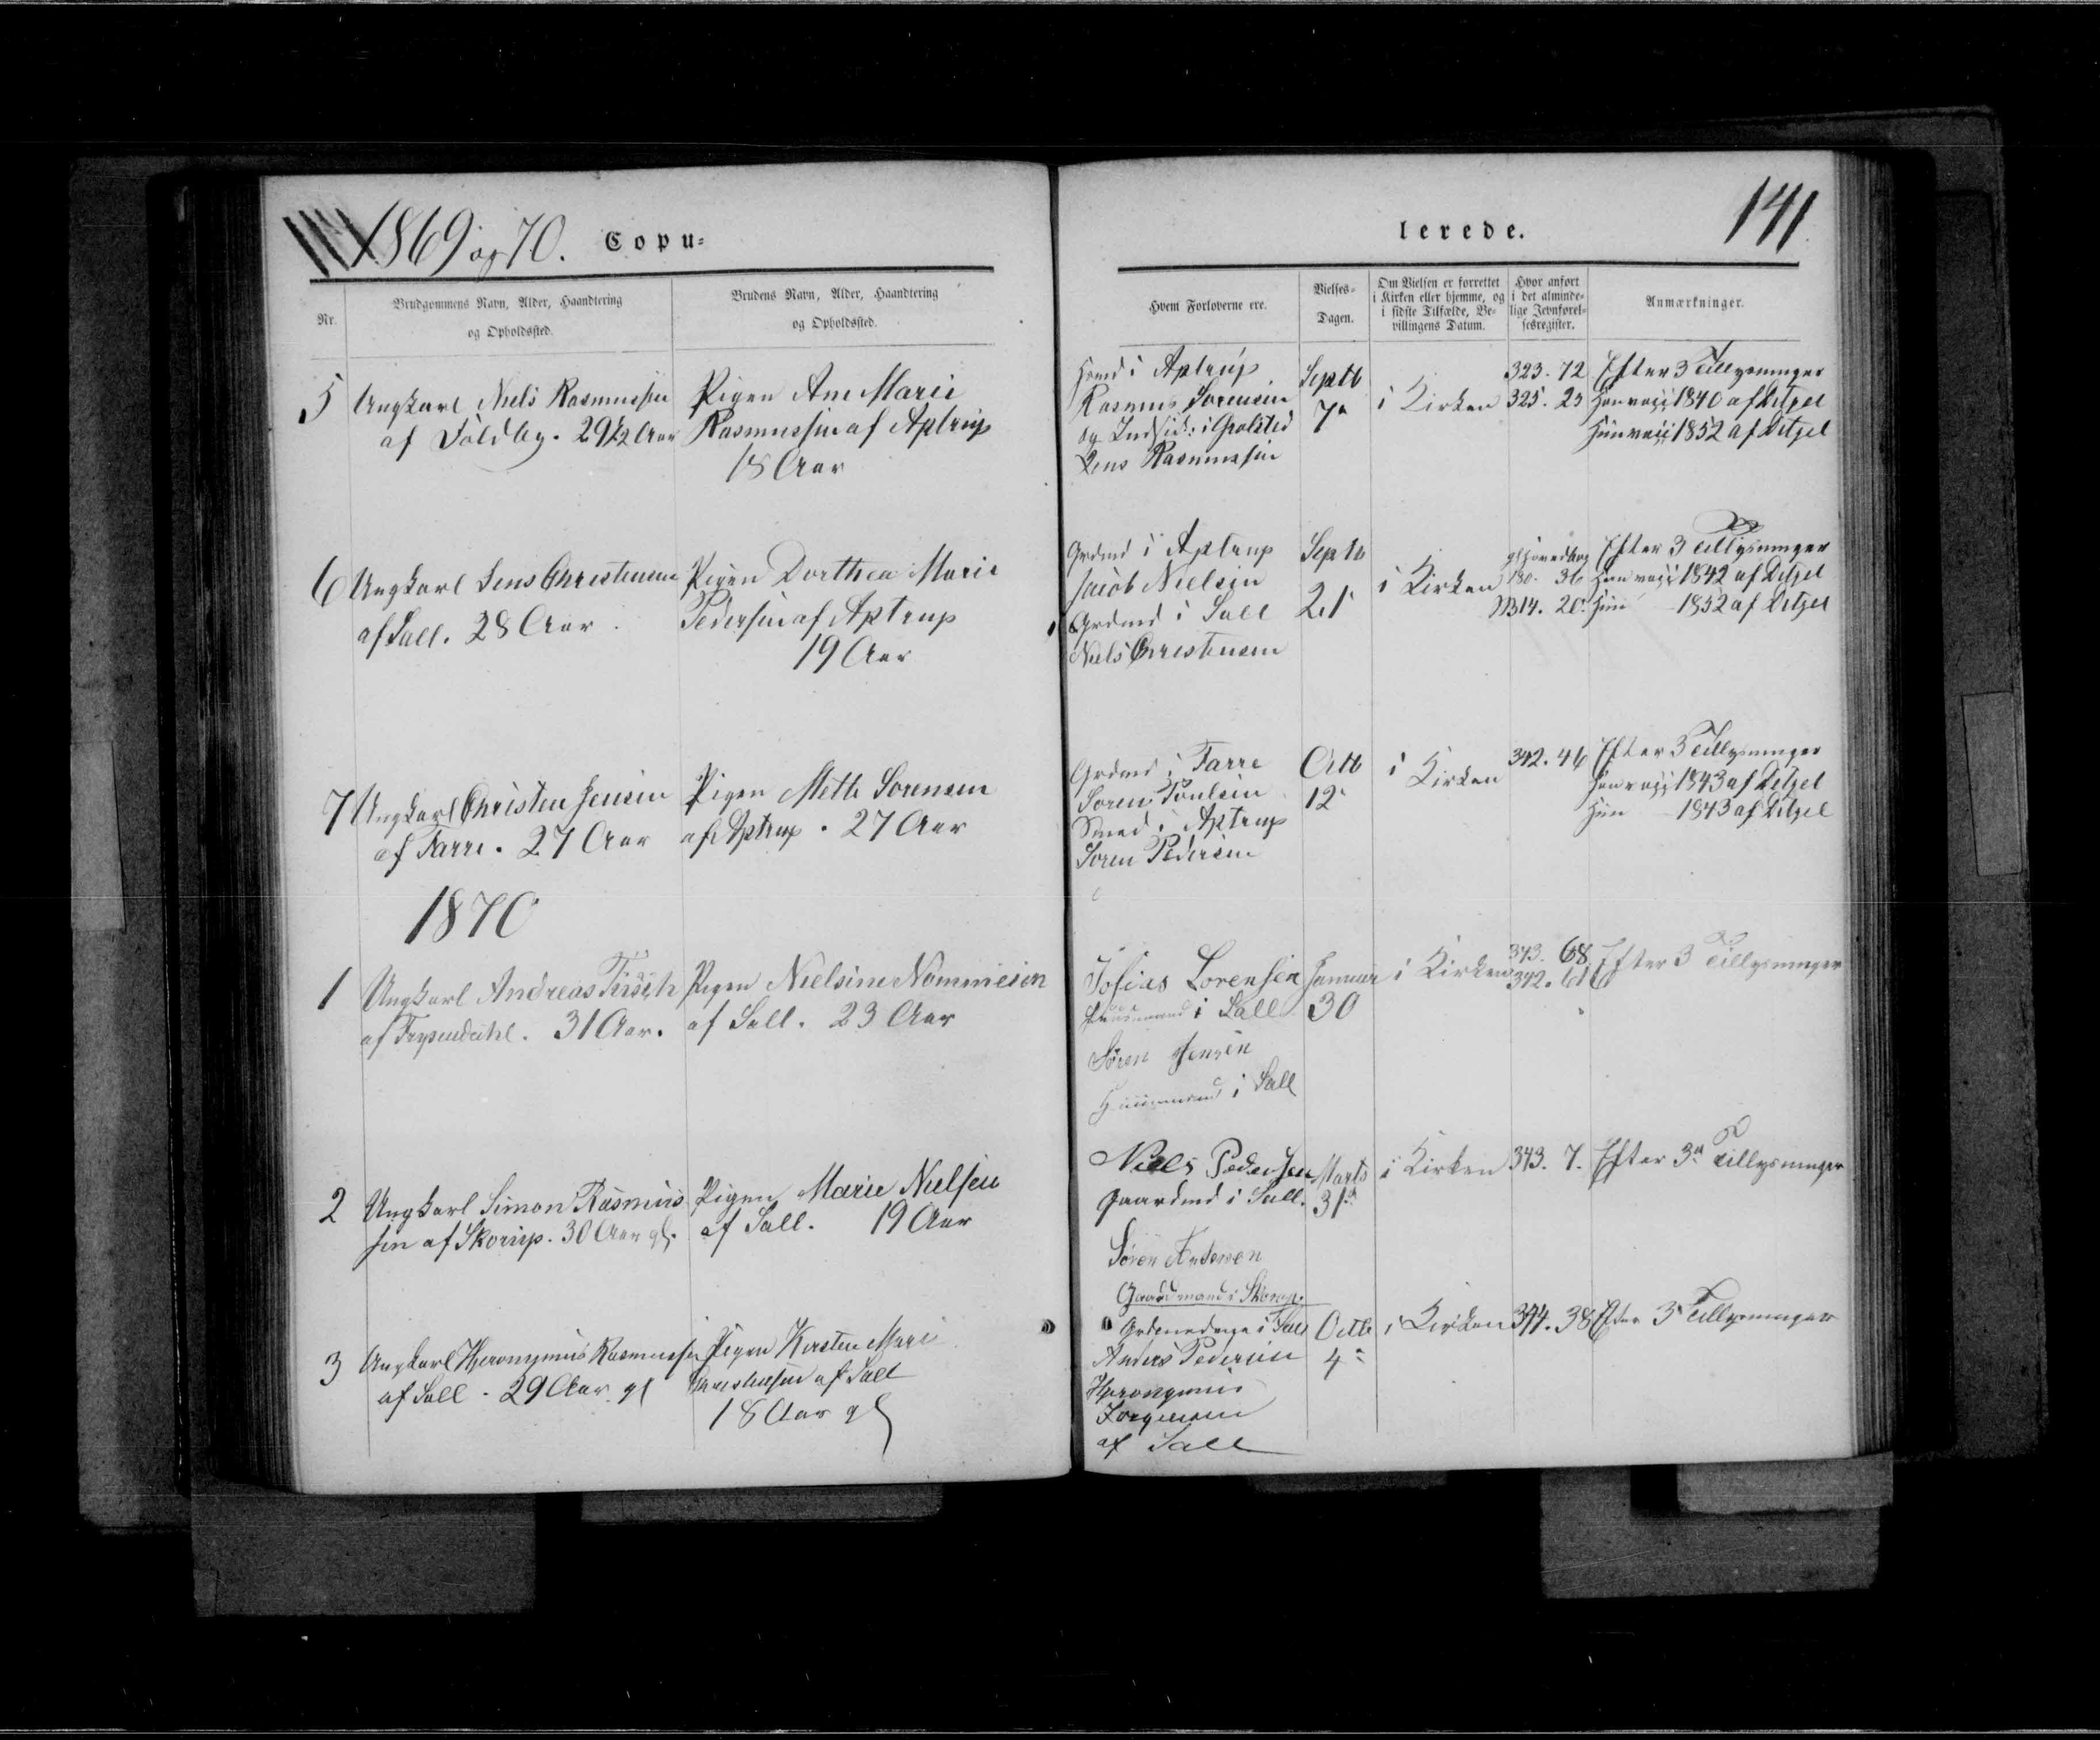 1869 og 70. Copu=
lerede.
141
Nr.
Brudgommens Navn, Alder, Haandtering
og Opholdssted.
Brudens Navn, Alder, Haandtering
og Opholdssted.
Hvem Forloverne ere.
Vielses=
Dagen.
Om Vielsen er forrettet
i Kirken eller hjemme, og
i sidste Tilfælde, Be=
villingens Datum.
Hvor anført
i det alminde=
lige Jevnførel=
sesregister.
Anmærkninger.
5
Ungkarl Niels Rasmussen
af Foldby. 29½ Aar
Pigen Ane Marie
Rasmussen af Aptrup
18 Aar
i Aptrup
Rasmus Sørensen
og Indsid: i
Jens Rasmussen
Septb
7
i Kirken
323. 72
325. 23
Efter 3 Tillysninger
Han vacc 1840 af Ditzel
Hun vacc 1852 af Ditzel
6
Ungkarl Jens Christensen
af Sall. 28 Aar.
Pigen Dorthea Marie
Pedersen af Aptrup
19 Aar
Grdmd i Aptrup
Jacob Nielsen
Grdmd i Sall
Niels Christensen
Septb
21
i Kirken
Efter 3 Tillysninger
Han vacc 1842 af Ditzel
Hun – 1852 af Ditzel
7
Ungkarl Christen Jensen
af Farre. 27 Aar
Pigen Mette Sørensen
af Aptrup. 27 Aar
Grdmd i Farre
Søren Poulsen
Smed i Aptrup
Søren Pedersen
Octb
12
i Kirken
342. 46
Efter 3 Tillysninger
Han vacc 1843 af Ditzel
Hun – 1843 af Ditzel
1870
1
Ungkarl Andreas
af Frysendahl. 31 Aar.
Pigen Nielsine
af Sall. 23 Aar
Josias Lorensen
Huusmand i Sall
Søren Jensen
Huusmand i Sall
Januar
30
i Kirken
343. 68
342.
Efter 3 Tillysninger
2
Ungkarl Simon Rasmus
sen af Skorup. 30 Aar gl.
Pigen Marie Nielsen
af Sall. 19 Aar
Niels Pedersen
Gaardmd i Sall.
Søren Andersen
Gaardmand i Skorup.
Marts
31
i Kirken
343. 7.
Efter 3 Tillysninger
3
Ungkarl Hyeronymus Rasmussen
af Sall. 29 Aar gl
Pigen Kirsten Marie
af Sall
18 Aar gl
i Sall
Anders Pedersen
Hyeronymus
Jørgensen
af Sall
Octb
4
i Kirken
344. 38
Efter 3 Tillysninger